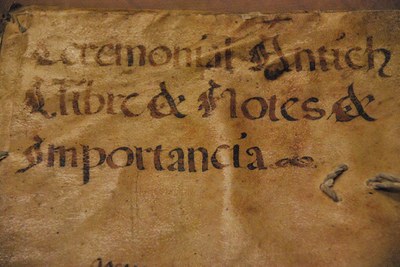 Ceremonial Antich
Llibre de Notes de
Importancia